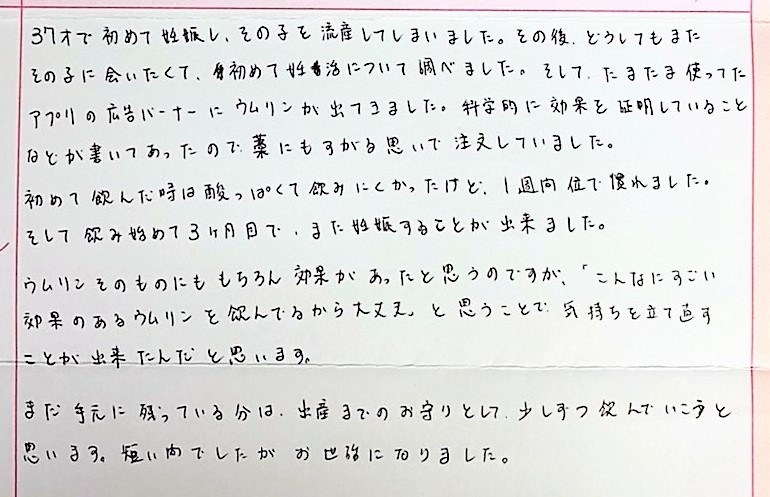 37才で初めて妊娠し、その子を流産してしまいました。その後、どうしてもまた
その子に会いたくて、初めて妊活について調べました。そして、たまたま使ってた
アプリの広告バーナーにウムリンが出てきました。科学的に効果を証明していること
などが書いてあったので、藁にもすがる思いで注文していました。
初めて飲んだ時は酸っぱくて飲みにくかったけど、1週間位で慣れました。
そして飲み始めて3ヶ月目で、また妊娠することが出来ました。
ウムリンそのものにももちろん効果があったと思うのですが、「こんなにすごい
効果のあるウムリンを飲んでるから大丈夫」と思うことで気持ちを立て直す
ことが出来たんだと思います。
まだ手元に残っている分は、出産までのお守りとして、少しずつ飲んでいこうと
思います。短い間でしたがお世話になりました。